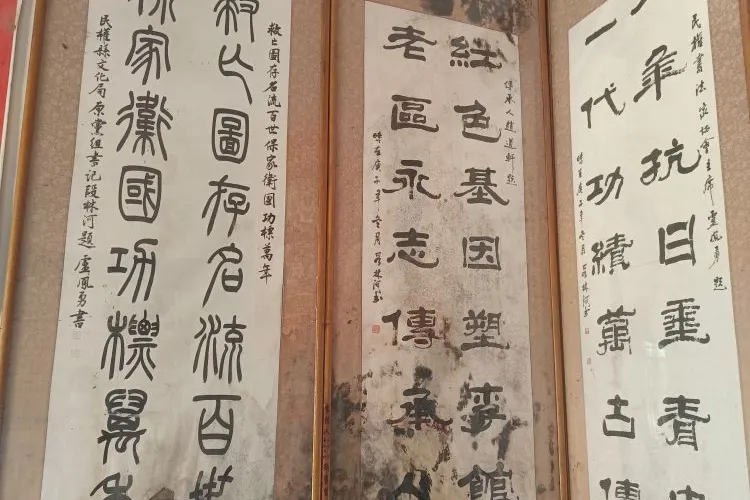 民權書法家協會主席盧鳳勇題
年抗日垂青
一代功績萬古傳
時在庚子年冬月段林河書
傳承人趙道軒題
紅色基因塑李館
老區永志傳承人
時在庚子年冬月段林河書
救亡圖存名流百世保家衛國功標萬年
救亡圖存名流百世
保家衛國功標萬年
民權縣文化局原黨組書記段林河題 盧鳳勇書